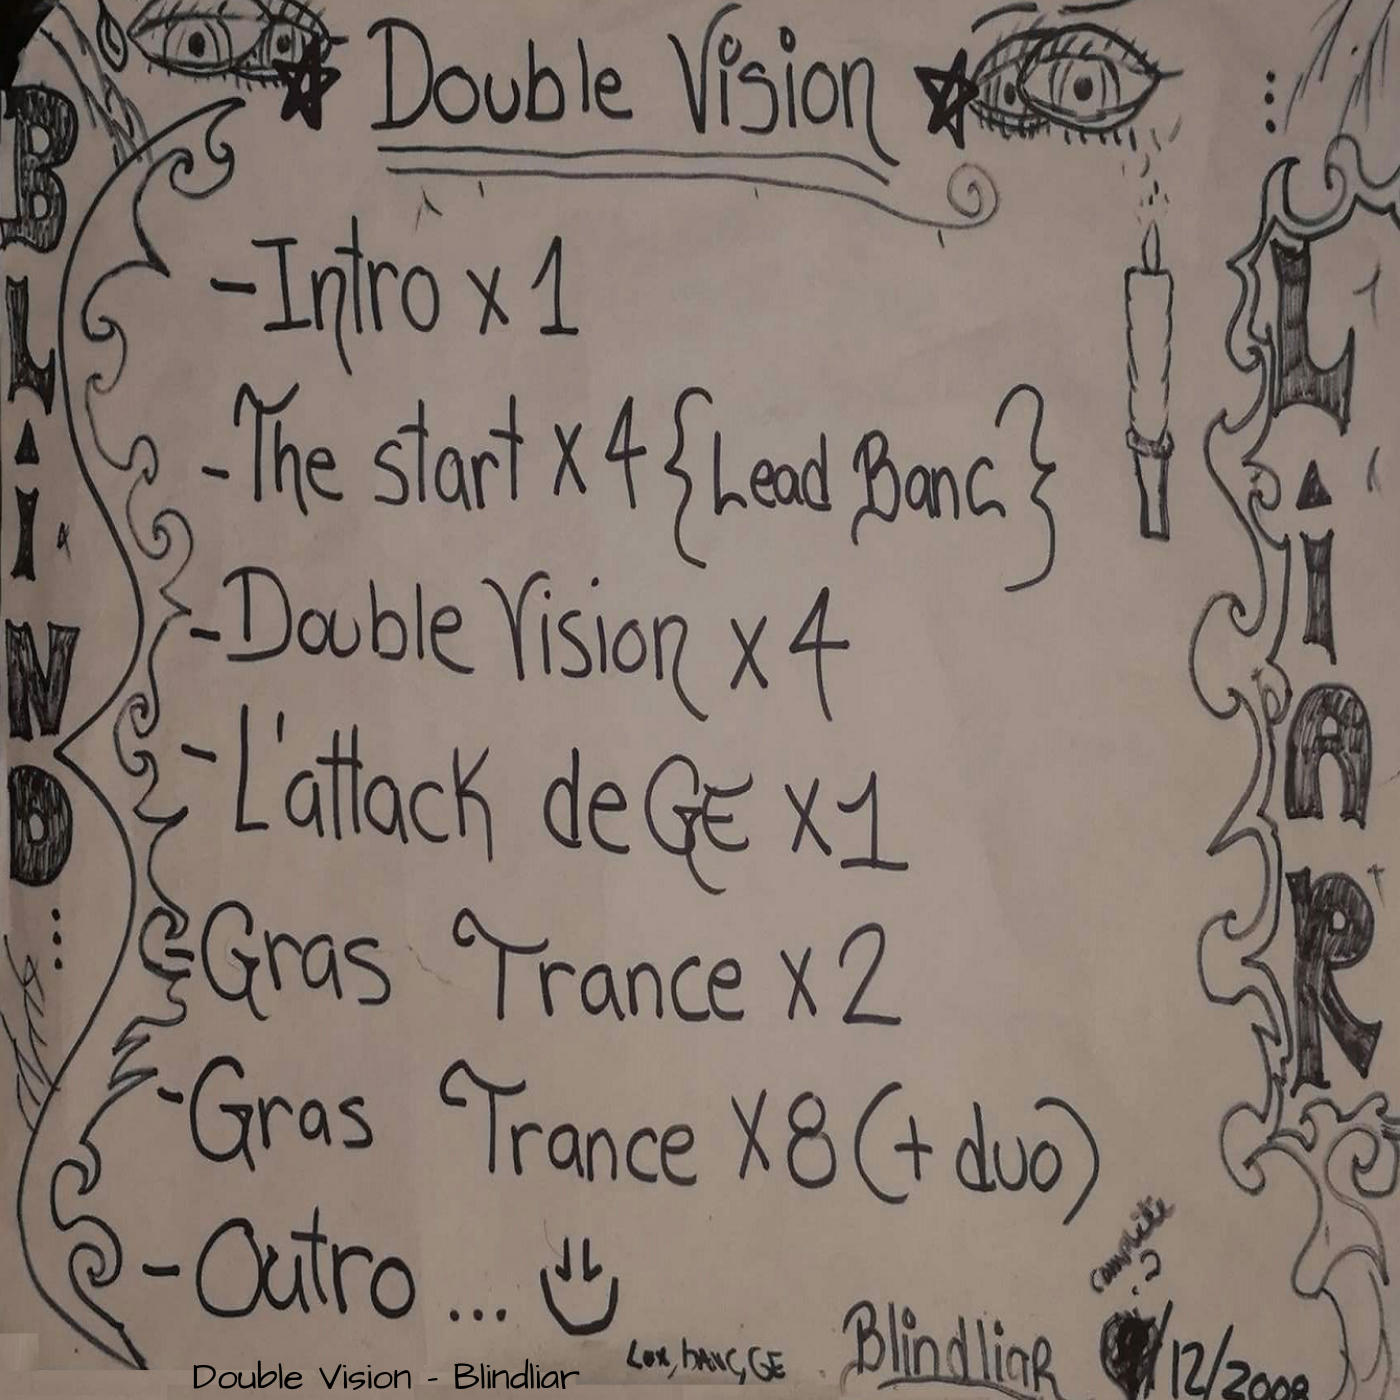 Double Vision
BLIND...
...LIAR
- Intro x 1
- The start x 4 {Lead Banc}
- Double Vision x 4
- L'attack de GE x 1
- Gras Trance x 2
- Gras Trance x 8 (+ duo)
- Outro ...
complète
Lox, bANC, GE
Blindliar
/12/2009
Double Vision - Blindliar